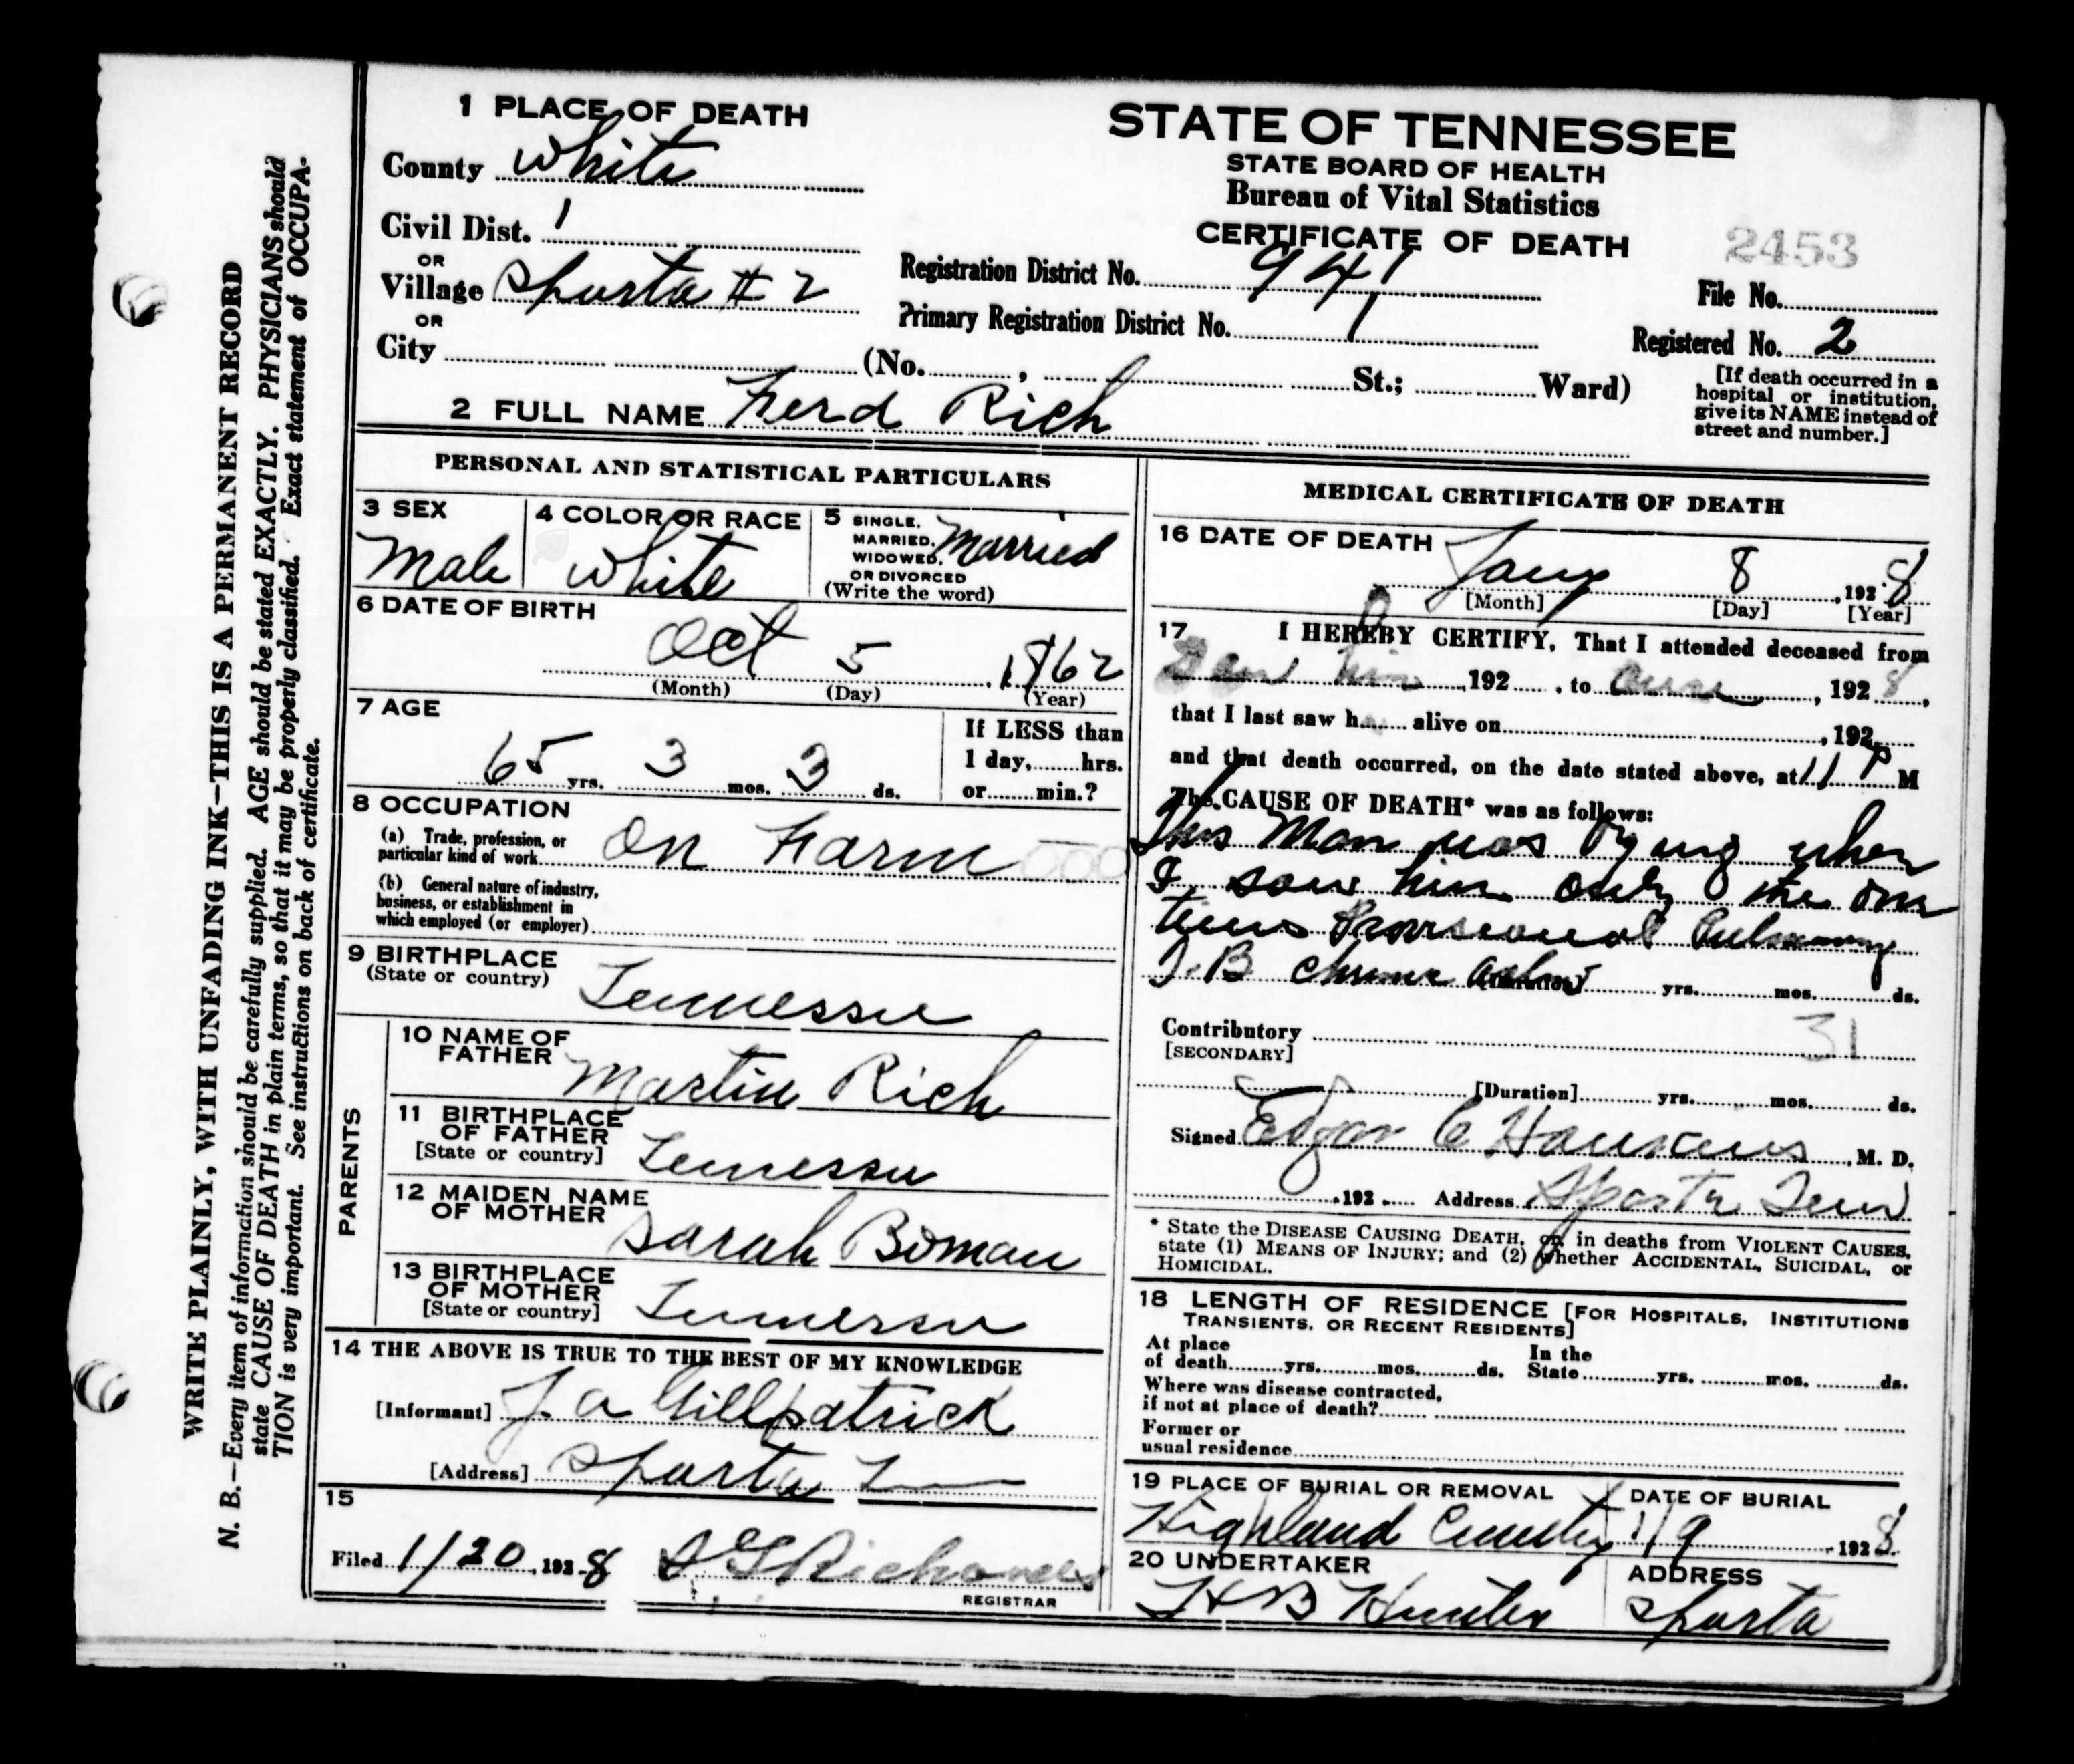 WRITE PLAINLY, WITH UNFADING INK—THIS IS A PERMANENT RECORD
N. B.—Every item of information should be carefully supplied. AGE should be stated EXACTLY. PHYSICIANS should
state CAUSE OF DEATH in plain terms, so that it may be properly classified. Exact statement of OCCUPA-
TION is very important. See instructions on back of certificate.
1 PLACE OF DEATH
County White
Civil Dist. 1
OR
Village Sparta #2
OR
City (No. , St.; Ward)
STATE OF TENNESSEE
STATE BOARD OF HEALTH
Bureau of Vital Statistics
CERTIFICATE OF DEATH
2453
Registration District No. 941
File No.
Primary Registration District No. 1
Registered No. 2
[If death occurred in a
hospital or institution,
give its NAME instead of
street and number.]
2 FULL NAME Ferd Rich
PERSONAL AND STATISTICAL PARTICULARS
3 SEX
Male
4 COLOR OR RACE
White
5 SINGLE,
MARRIED,
WIDOWED,
OR DIVORCED
(Write the word)
Married
6 DATE OF BIRTH
Oct 5, 1862
(Month) (Day) (Year)
7 AGE
65 yrs. 3 mos. 3 ds.
If LESS than
1 day, hrs.
or min.?
8 OCCUPATION
(a) Trade, profession, or
particular kind of work On Farm
(b) General nature of industry,
business, or establishment in
which employed (or employer)
9 BIRTHPLACE
(State or country) Tennessee
PARENTS
10 NAME OF
FATHER Martin Rich
11 BIRTHPLACE
OF FATHER
[State or country] Tennessee
12 MAIDEN NAME
OF MOTHER Sarah Boman
13 BIRTHPLACE
OF MOTHER
[State or country] Tennessee
14 THE ABOVE IS TRUE TO THE BEST OF MY KNOWLEDGE
[Informant] J. A Gillpatrick
[Address] Sparta
15
Filed 1/20, 1928
REGISTRAR
MEDICAL CERTIFICATE OF DEATH
16 DATE OF DEATH
Jany 8, 1928
[Month] [Day] [Year]
17 I HEREBY CERTIFY, That I attended deceased from
him, 192 , to , 1928,
that I last saw h alive on , 192
and that death occurred, on the date stated above, at 11 P M
The CAUSE OF DEATH* was as follows:
This Man was Dying when
I saw him only the one
Pulmonary
T. B yrs. mos. ds.
Contributory 31
[SECONDARY]
[Duration] yrs. mos. ds.
Signed Edgar C, M. D.
, 192 Address Sparta Tenn
* State the DISEASE CAUSING DEATH, or in deaths from VIOLENT CAUSES,
state (1) MEANS OF INJURY; and (2) whether ACCIDENTAL, SUICIDAL, or
HOMICIDAL.
18 LENGTH OF RESIDENCE [FOR HOSPITALS, INSTITUTIONS
TRANSIENTS, OR RECENT RESIDENTS]
At place
of death yrs. mos. ds.
In the
State yrs. mos. ds.
Where was disease contracted,
if not at place of death?
Former or
usual residence
19 PLACE OF BURIAL OR REMOVAL
Highland
DATE OF BURIAL
1/9, 1928
20 UNDERTAKER
Hunter
ADDRESS
Sparta